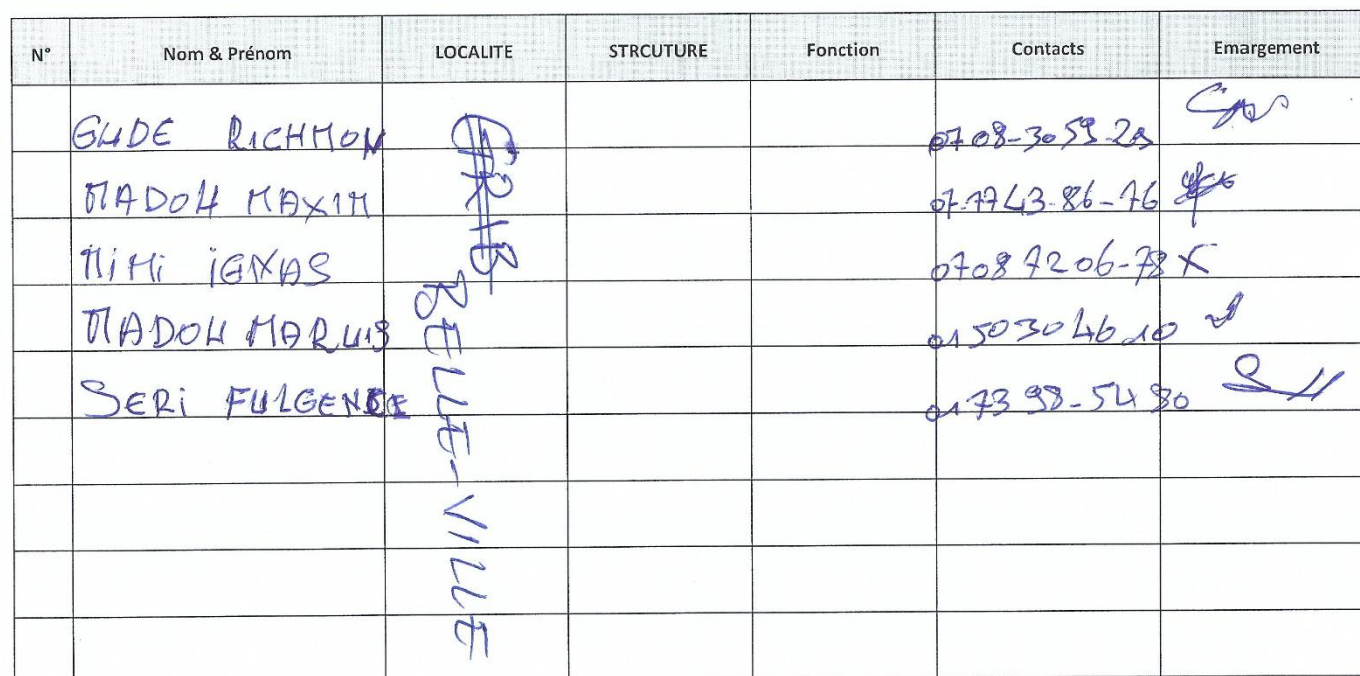 N° Nom & Prénom LOCALITE STRCUTURE Fonction Contacts Emargement
GUDE RICHMON 0708-3059-29
MADOU MAXIM 07-7743-86-76
MIMI IGNAS 07087206-78 X
MADOU MARUIS 0150304610
SERI FULGENCE 0173 98-54 90
BELLE-VILLE